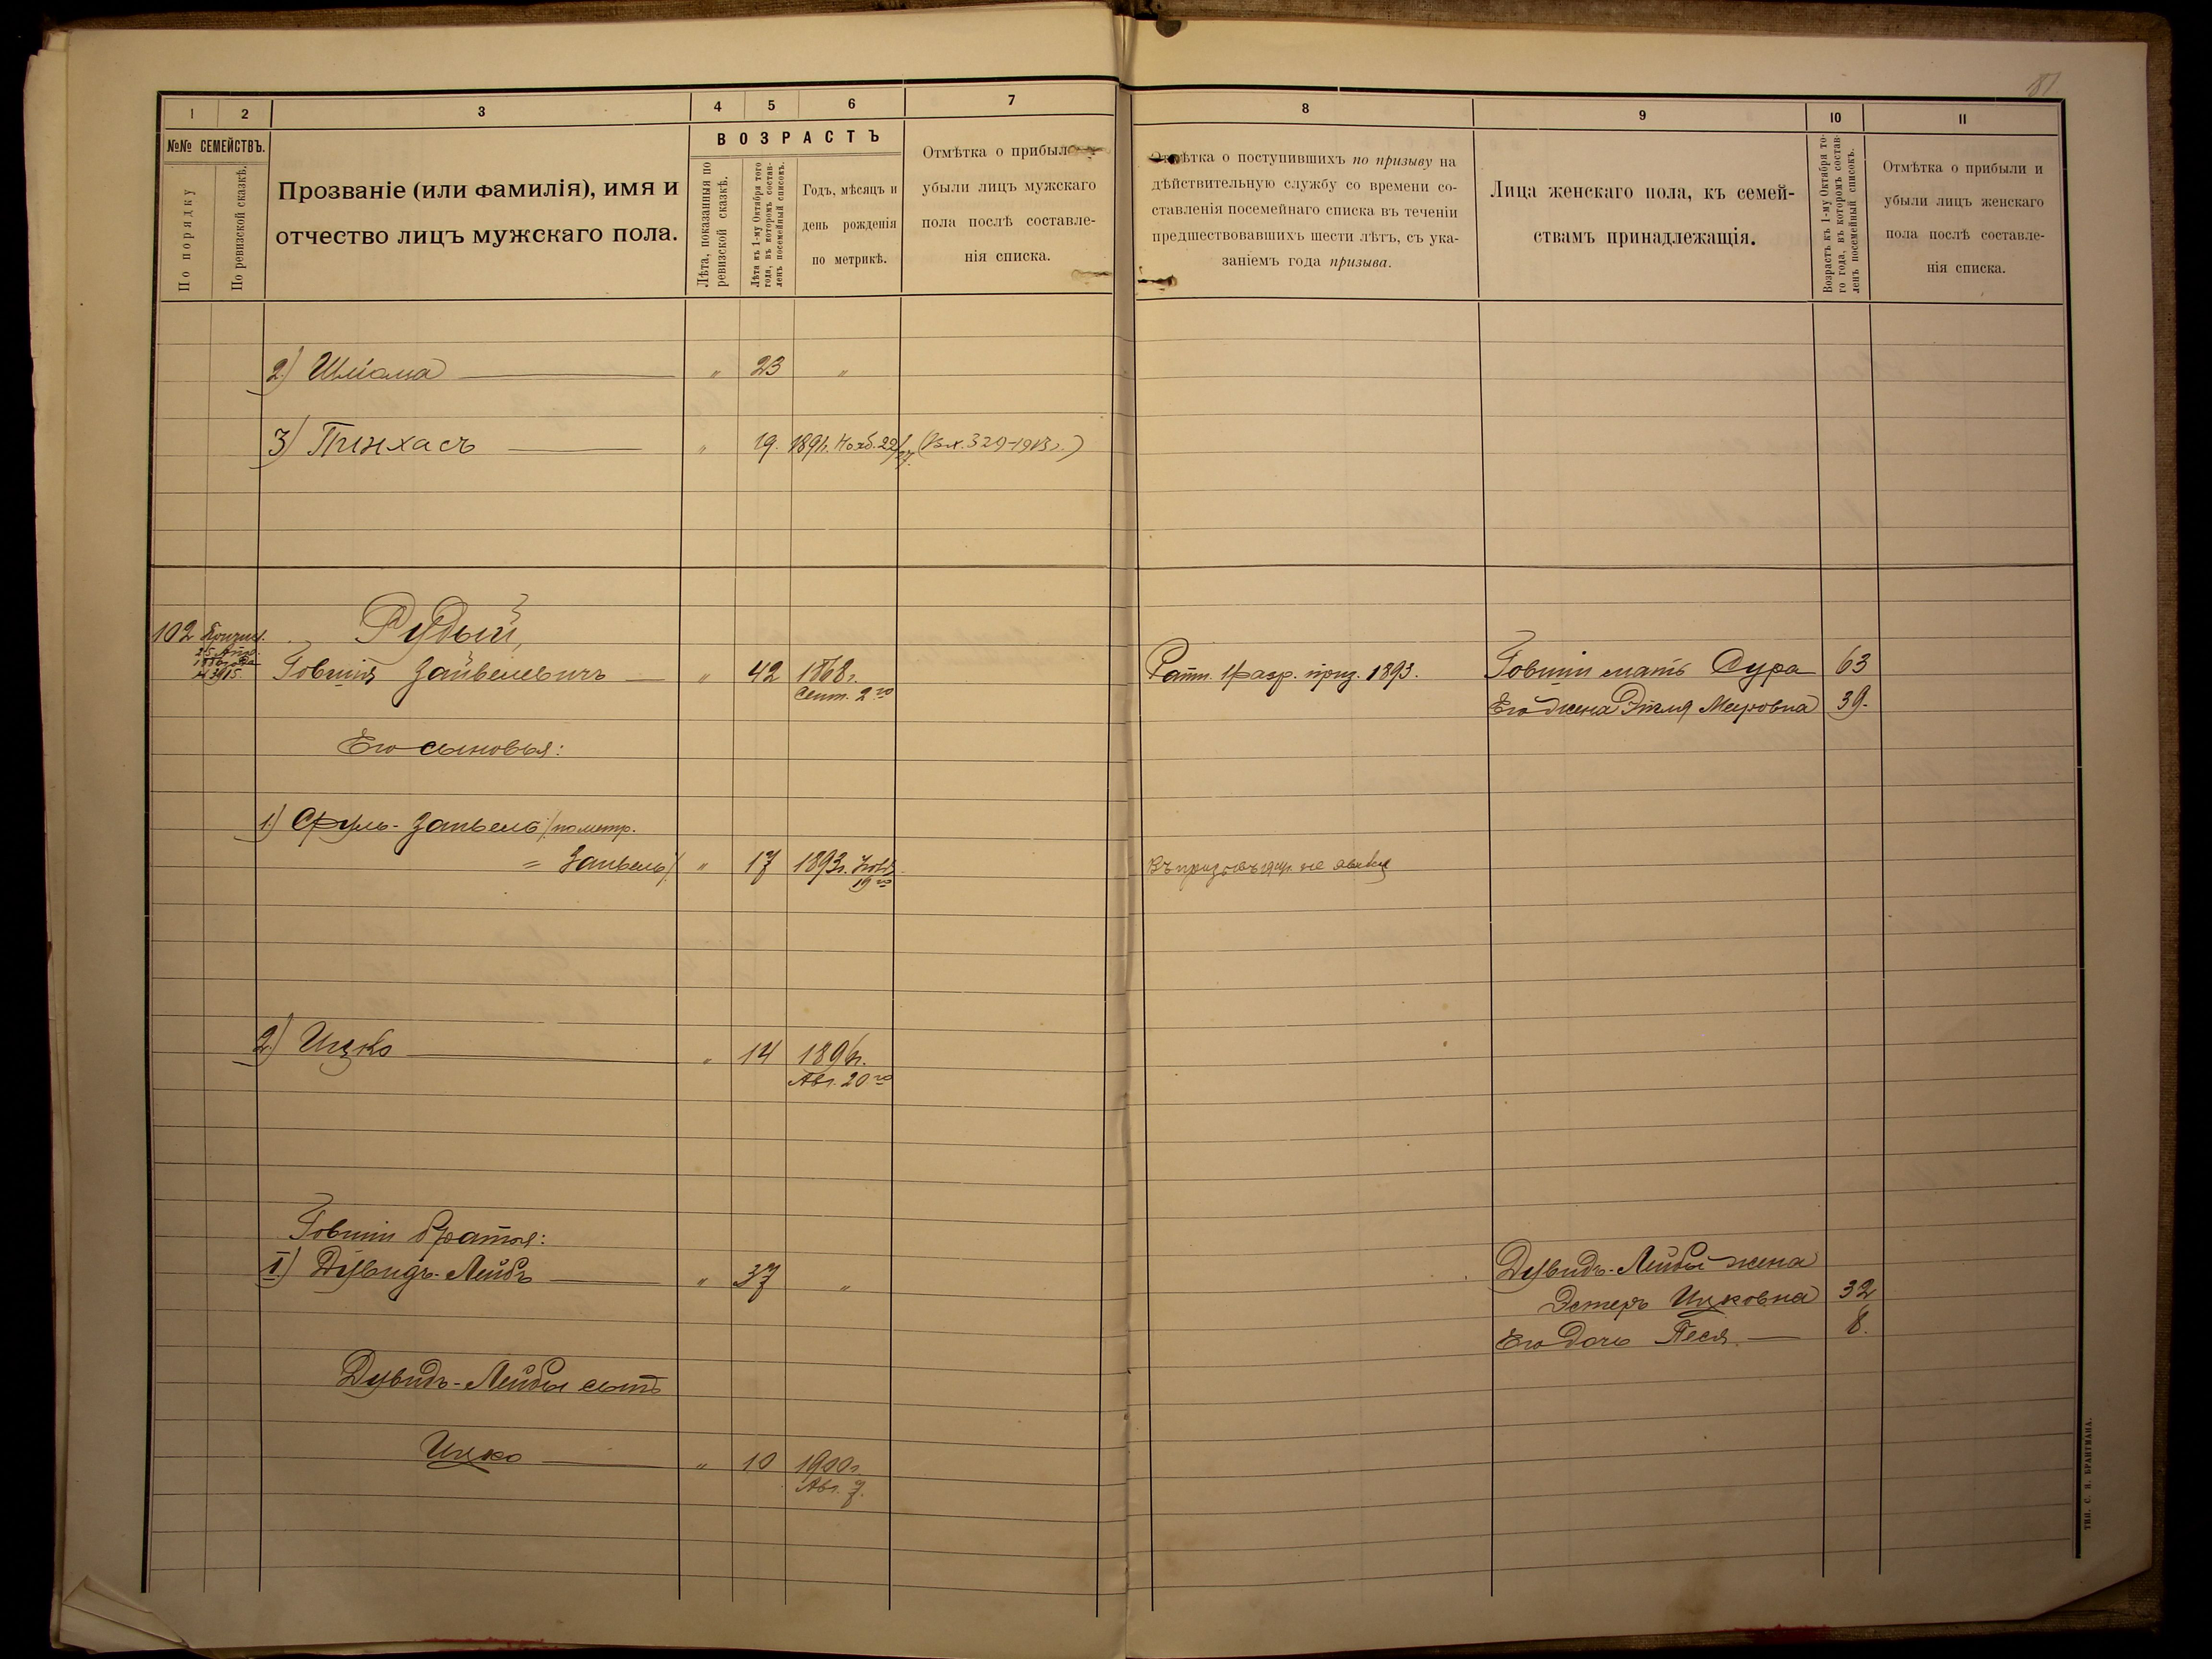 81
1 2 3 4 5 6 7
№№ СЕМЕЙСТВЪ.
По порядку
По ревизской сказкѣ.
Прозваніе (или фамилія), имя и
отчество лицъ мужскаго пола.
ВОЗРАСТЪ
Лѣта, показанныя по
ревизской сказкѣ.
Лѣта къ 1-му Октября того
года, въ которомъ состав-
ленъ посемейный списокъ.
Годъ, мѣсяцъ и
день рожденія
по метрикѣ.
Отмѣтка о прибыли и
убыли лицъ мужскаго
пола послѣ составле-
нія списка.
8 9 10 11
Отмѣтка о поступившихъ по призыву на
дѣйствительную службу со времени со-
ставленія посемейнаго списка въ теченіи
предшествовавшихъ шести лѣтъ, съ ука-
заніемъ года призыва.
Лица женскаго пола, къ семей-
ствамъ принадлежащія.
Возрастъ къ 1-му Октября то-
го года, въ которомъ состав-
ленъ посемейный списокъ.
Отмѣтка о прибыли и
убыли лицъ женскаго
пола послѣ составле-
нія списка.
2.) Шлiома — " 23 "
3) Пинхасъ — " 19. 1891г. Нояб. 22/27. (Вх. 329-1913г.)
102 Причис.
25 Апр.
1886 года
№ 3915.
Рудый,
Говшiя Зайвелевичъ — " 42 1868г.
Сент. 2го
Ратн. 1 разр. приз. 1893.
Говшiи мать Сура 63
Его жена Этля Меировна 39.
Его сыновья:
1.) Сруль-Зайвель /по метр.
= Зайвель/ " 17 1893г.
19го
Въ призывъ не явился
2.) Ицко — " 14 1896г.
Авг. 20го
Говшiи братья:
I.) Дувидъ-Лейбъ — " 37 "
Дувидъ-Лейбы жена
Эстеръ Ицковна 32
Его дочь Песя — 8.
Дувидъ-Лейбы сынъ
Ицко — " 10 1900г.
Авг. 7.
ТИП. С. Я. БРАНТМАНА.